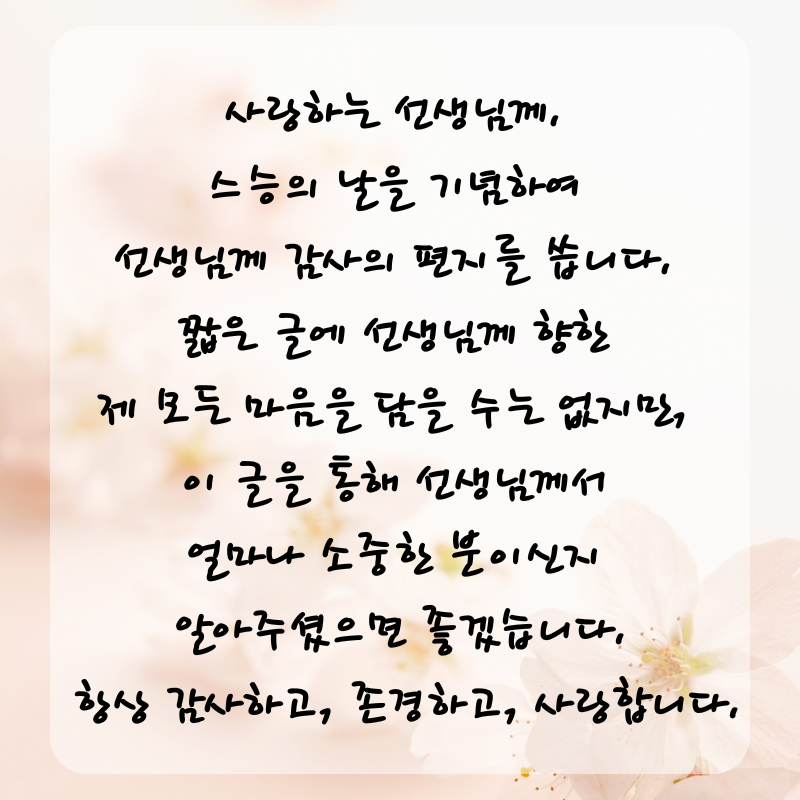 사랑하는 선생님께,
스승의 날을 기념하여
선생님께 감사의 편지를 씁니다.
짧은 글에 선생님께 향한
제 모든 마음을 담을 수는 없지만,
이 글을 통해 선생님께서
얼마나 소중한 분이신지
알아주셨으면 좋겠습니다.
항상 감사하고, 존경하고, 사랑합니다.